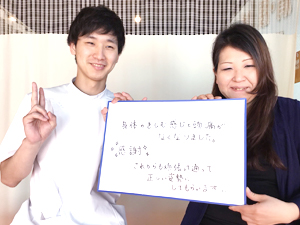 身体のきしむ感じと頭痛が
なくなりました。
感謝
これからも頑張って通って
正しい姿勢に
してもらいます。